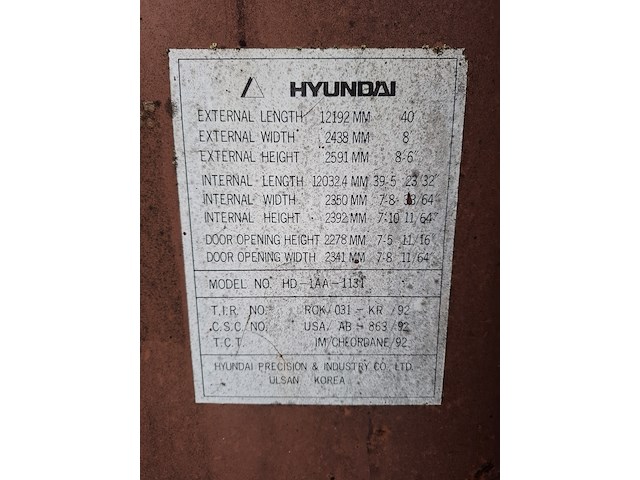 HYUNDAI
EXTERNAL LENGTH 12192 MM 40'
EXTERNAL WIDTH 2438 MM 8'
EXTERNAL HEIGHT 2591 MM 8-6"
INTERNAL LENGTH 12032.4 MM 39-5 23/32"
INTERNAL WIDTH 2350 MM 7-8 33/64"
INTERNAL HEIGHT 2392 MM 7-10 11/64"
DOOR OPENING HEIGHT 2278 MM 7-5 11/16"
DOOR OPENING WIDTH 2341 MM 7-8 11/64"
MODEL NO. HD-1AA-113T
T.I.R. NO. ROK/031-KR/92
C.S.C. NO. USA/AB-863/92
T.C.T. IM/CHEORDANE/92
HYUNDAI PRECISION & INDUSTRY CO. LTD.
ULSAN KOREA